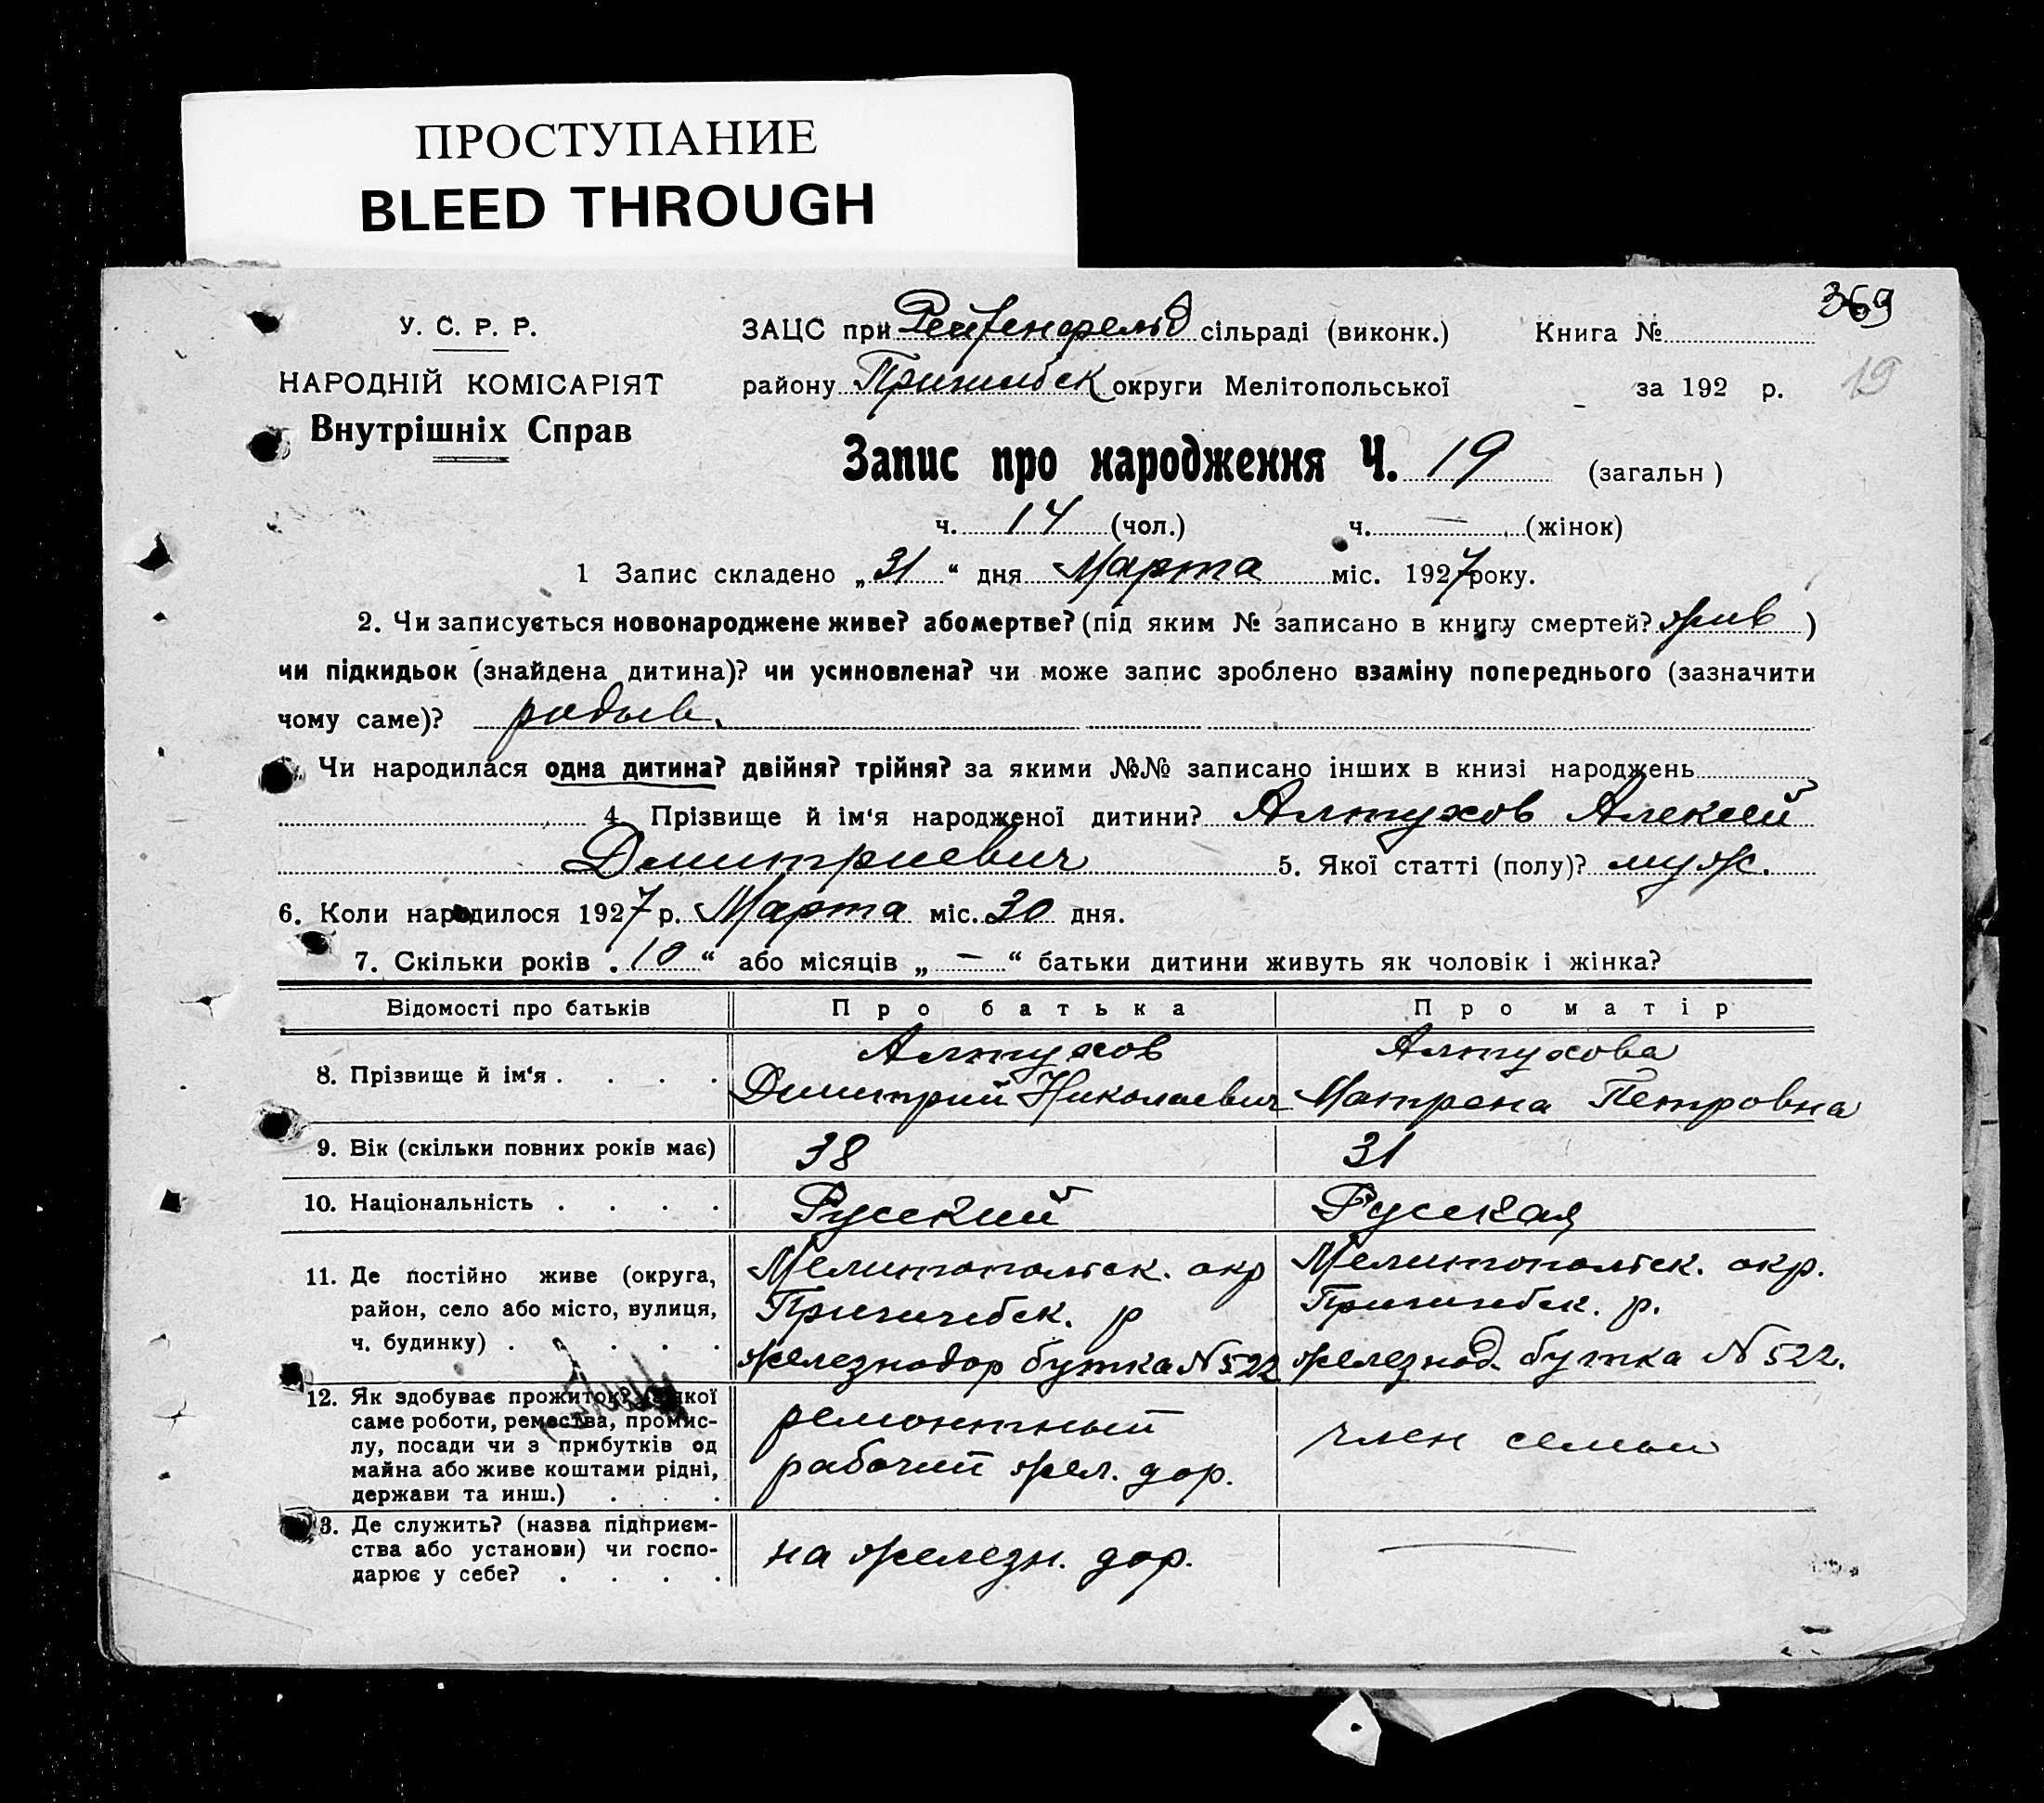 ПРОСТУПАНИЕ
BLEED THROUGH
369
У. С. Р. Р.
ЗАЦС при Рейхенфельд сільраді (виконк.) Книга №
НАРОДНІЙ КОМІСАРІЯТ
району Пришибск округи Мелітопольської за 192 р.
19
Внутрішніх Справ
Запис про народження Ч. 19 (загальн )
ч. 14 (чол.) ч. — (жінок)
1 Запис складено „31“ дня Марта міс. 1927 року.
2. Чи записується новонароджене живе? або мертве? (під яким № записано в книгу смертей? жив )
чи підкидьок (знайдена дитина)? чи усиновлена? чи може запис зроблено взаміну попереднього (зазначити
чому саме)?
Чи народилася одна дитина? двійня? трійня? за якими №№ записано інших в книзі народжень
4. Прізвище й ім‘я народженої дитини? Алтухов Алексей
Дмитриевич 5. Якої статті (полу)? муж.
6. Коли народилося 1927 р. Марта міс. 30 дня.
7. Скільки років „10“ або місяців „—“ батьки дитини живуть як чоловік і жінка?
Відомості про батьків Про батька Про матір
8. Прізвище й ім‘я . . . . Алтухов Алтухова
Димитрий Николаевич Матрена Петровна
9. Вік (скільки повних років має) 38 31
10. Національність . . . . Русский Русская
11. Де постійно живе (округа, Мелитопольск. окр Мелитопольск. окр.
район, село або місто, вулиця, Пришибск. р Пришибск. р.
ч. будинку) . . . . железнодор будка N 522 железнод. будка N 522.
12. Як здобуває прожиток? (з якої
саме роботи, ремества, промис- ремонтный
лу, посади чи з прибутків од член семьи
майна або живе коштами рідні, рабочий жел. дор.
держави та инш.) . . .
13. Де служить? (назва підприєм-
ства або установи) чи госпо- на железн. дор. —
дарює у себе? . . . .